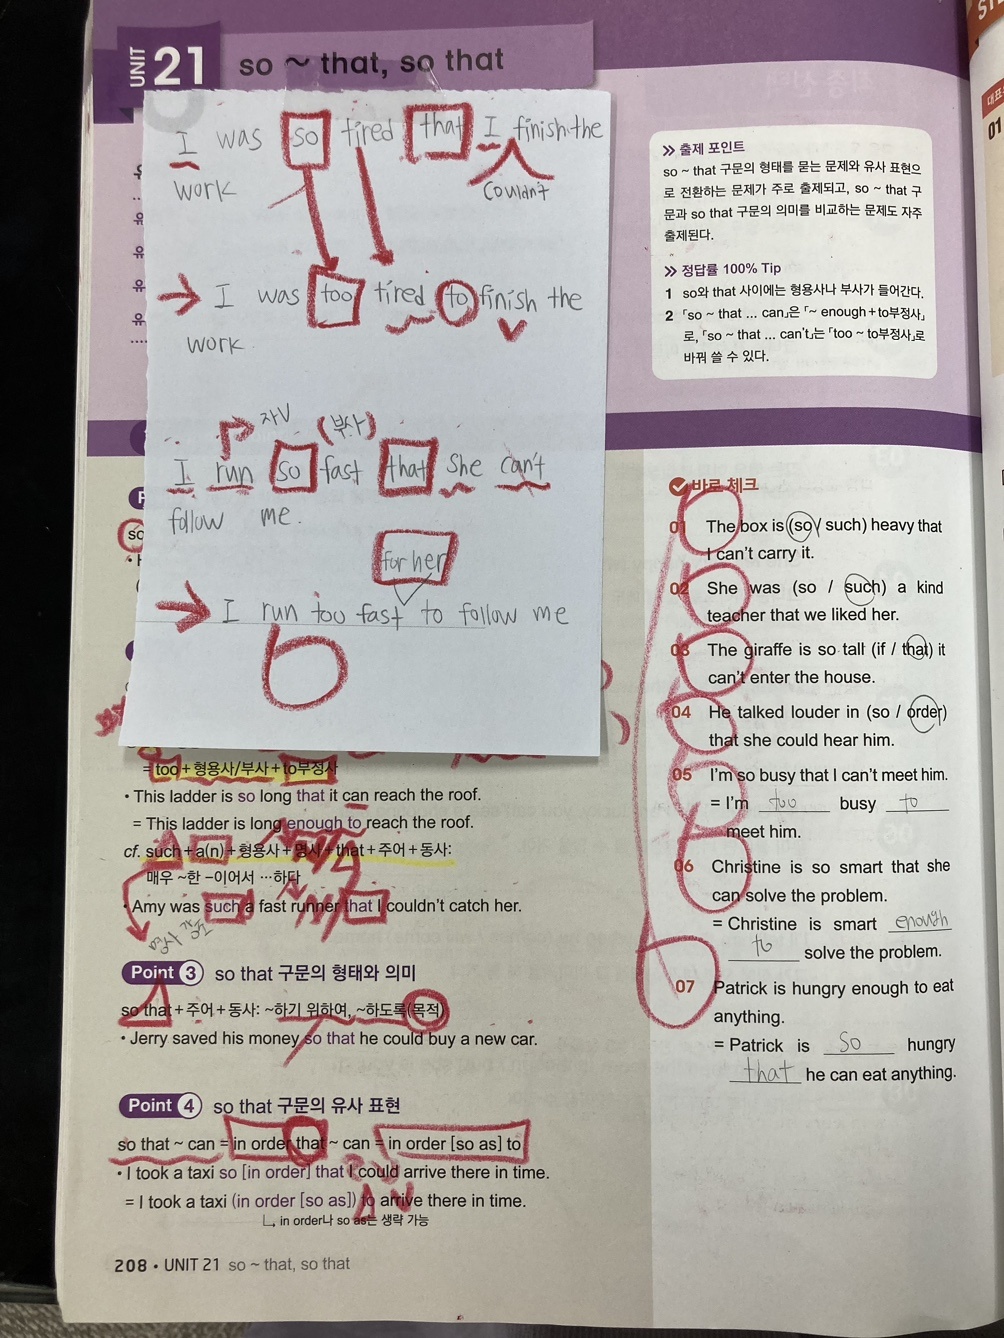 UNIT 21 so ~ that, so that
I was so tired that I finish the
couldn't
work
→ I was too tired to finish the
work.
자V (부사)
I run so fast that she can't
follow me.
for her
→ I run too fast to follow me
= too + 형용사/부사 + to부정사
• This ladder is so long that it can reach the roof.
= This ladder is long enough to reach the roof.
cf. such + a(n) + 형용사 + 명사 + that + 주어 + 동사:
매우 ~한 –이어서 …하다
• Amy was such a fast runner that I couldn't catch her.
Point 3 so that 구문의 형태와 의미
so that + 주어 + 동사: ~하기 위하여, ~하도록(목적)
• Jerry saved his money so that he could buy a new car.
Point 4 so that 구문의 유사 표현
so that ~ can = in order that ~ can = in order [so as] to
• I took a taxi so [in order] that I could arrive there in time.
= I took a taxi (in order [so as]) to arrive there in time.
in order나 so as는 생략 가능
208 • UNIT 21 so ~ that, so that
출제 포인트
so ~ that 구문의 형태를 묻는 문제와 유사 표현으
로 전환하는 문제가 주로 출제되고, so ~ that 구
문과 so that 구문의 의미를 비교하는 문제도 자주
출제된다.
정답률 100% Tip
1 so와 that 사이에는 형용사나 부사가 들어간다.
2 「so ~ that … can」은 「~ enough + to부정사」
로, 「so ~ that … can't」는 「too ~ to부정사」로
바꿔 쓸 수 있다.
바로 체크
01 The box is (so / such) heavy that
I can't carry it.
02 She was (so / such) a kind
teacher that we liked her.
03 The giraffe is so tall (if / that) it
can't enter the house.
04 He talked louder in (so / order)
that she could hear him.
05 I'm so busy that I can't meet him.
= I'm too busy to
meet him.
06 Christine is so smart that she
can solve the problem.
= Christine is smart enough
to solve the problem.
07 Patrick is hungry enough to eat
anything.
= Patrick is so hungry
that he can eat anything.
01